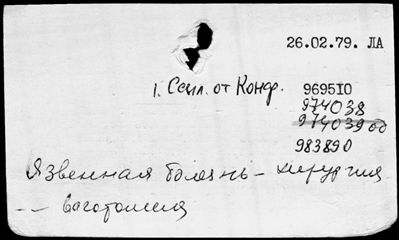 26.02.79. ЛА
1. Ссыл. от Конф. 969510
974038
97403900
983890
Язвенная болезнь - хирургия
- - ваготомия